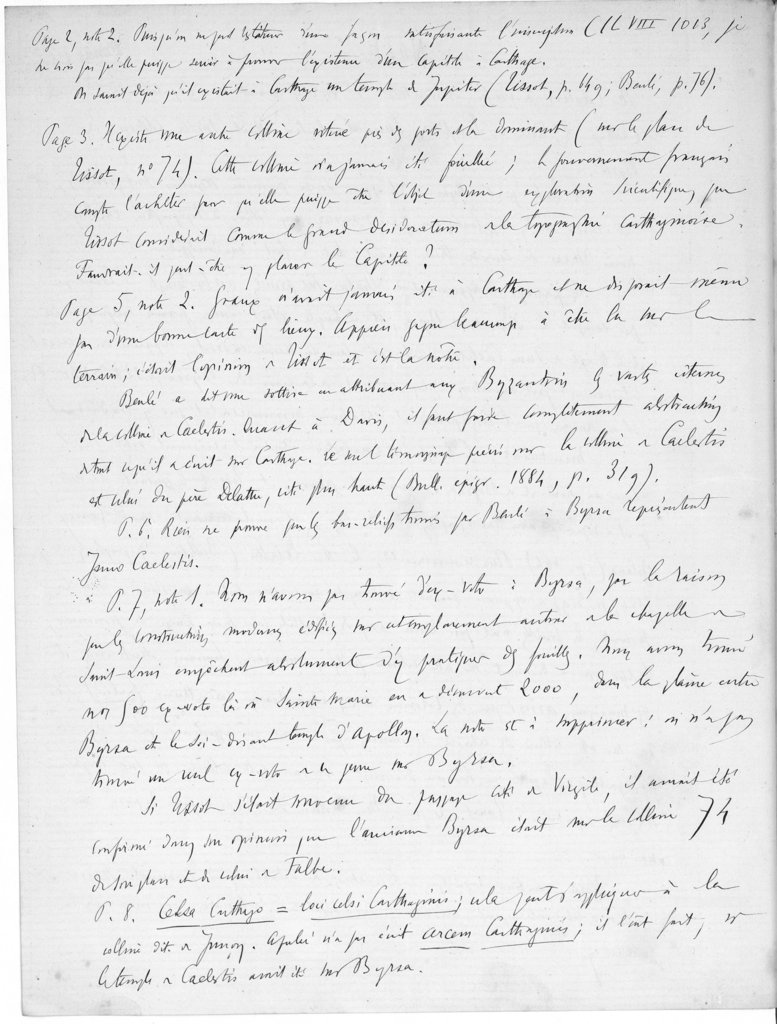 Page 2, note 2. Puisqu'on ne peut restituer d'une façon satisfaisante l'inscription CIL VIII 1013, je
ne crois pas qu'elle puisse servir à prouver l'existence d'un Capitole à Carthage.
On savait déjà qu'il existait à Carthage un temple de Jupiter (Tissot, p. 649; Beulé, p. 76).
Page 3. Il existe une autre colline située près des ports et la dominant (sur le plan de
Tissot, n° 74). Cette colline n'a jamais été fouillée; le gouvernement français
compte l'acheter pour qu'elle puisse être l'objet d'une exploration scientifique, que
Tissot considérait comme le grand desideratum de la topographie carthaginoise.
Faudrait-il peut-être y placer le Capitole?
Page 5, note 2. Graux n'avait jamais été à Carthage et ne disposait même
pas d'une bonne carte des lieux. Appien gagne beaucoup à être lu sur le
terrain; c'était l'opinion de Tissot et c'est la nôtre.
Beulé a dit une sottise en attribuant aux Byzantins les vastes citernes
de la colline de Caelestis. Quant à Davis, il faut faire complètement abstraction
de tout ce qu'il a écrit sur Carthage. Le seul témoignage précis sur la colline de Caelestis
est celui du père Delattre, cité plus haut (Bull. épigr. 1884, p. 319).
P. 6. Rien ne prouve que les bas-reliefs trouvés par Beulé à Byrsa représentent
Juno Caelestis.
P. 7, note 1. Nous n'avons pas trouvé d'ex-voto à Byrsa, par la raison
que les constructions modernes édifiées sur et autour de la chapelle de
Saint-Louis empêchent absolument d'y pratiquer des fouilles. Nous avons trouvé
nos 500 ex-voto là où Sainte Marie en a découvert 2000, dans la plaine entre
Byrsa et le soi-disant temple d'Apollon. La note est à supprimer: on n'a pas
trouvé un seul ex-voto de ce genre sur Byrsa.
Si Tissot s'était souvenu du passage cité de Virgile, il aurait été
confirmé dans son opinion que l'ancienne Byrsa était sur la colline 74
de son plan et de celui de Falbe.
P. 8. Celsa Carthago = loci celsi Carthaginis; cela peut s'appliquer à la
colline dite de Junon. Apulée n'a pas écrit arcem Carthaginis; il l'eût fait, si
le temple de Caelestis avait été sur Byrsa.